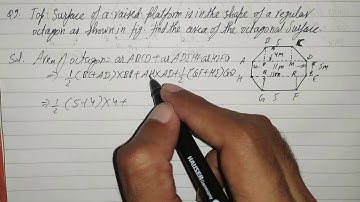 Q9. Top Surface of a raised platform is in the shape of a regular
octagon as shown in fig. find the area of the octagonal Surface.
Sol. Area of octagon = ar ABCD + ar ADEH + ar HEFG
⇒ 1/2 (BC+AD)×BP + AH×AD + 1/2 (GF+HE)GQ
⇒ 1/2 (5+11)×4 +
B 5 C
4M
A D
11m 5m
H E
G 5 F
HAUSER